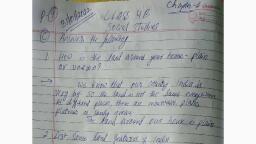 CLASS 4B
Social Studies
Answer the following
1 How is the land around your home - plain
or uneven?
We know that our country India is
very big so the land is not the same everywhere
at different places, there are mountains, plains
The land around our home is plain
2 List some land features of India